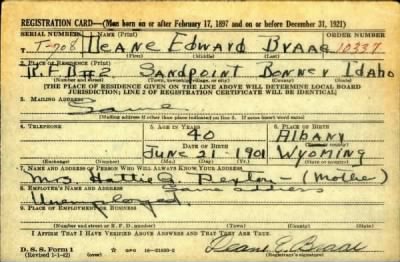 REGISTRATION CARD—(Men born on or after February 17, 1897 and on or before December 31, 1921)
SERIAL NUMBER 1. NAME (Print) ORDER NUMBER
T-708 Deane Edward Braae 10337
(First) (Middle) (Last)
2. PLACE OF RESIDENCE (Print)
R.F.D #2 Sandpoint Bonner Idaho
(Number and street) (Town, township, village, or city) (County) (State)
[THE PLACE OF RESIDENCE GIVEN ON THE LINE ABOVE WILL DETERMINE LOCAL BOARD
JURISDICTION; LINE 2 OF REGISTRATION CERTIFICATE WILL BE IDENTICAL]
3. MAILING ADDRESS
Same
(Mailing address if other than place indicated on line 2. If same insert word same)
4. TELEPHONE 5. AGE IN YEARS 6. PLACE OF BIRTH
40 Albany
DATE OF BIRTH (Town or county)
June 21 1901 Wyoming
(Exchange) (Number) (Mo.) (Day) (Yr.) (State or country)
7. NAME AND ADDRESS OF PERSON WHO WILL ALWAYS KNOW YOUR ADDRESS
Mrs. Hattie Dexton - (Mother)
8. EMPLOYER'S NAME AND ADDRESS same address
Unemployed
9. PLACE OF EMPLOYMENT OR BUSINESS
(Number and street or R. F. D. number) (Town) (County) (State)
I AFFIRM THAT I HAVE VERIFIED ABOVE ANSWERS AND THAT THEY ARE TRUE.
D. S. S. Form 1 GPO 16—21630-2
(Revised 1-1-42) (over) Deane E. Braae
(Registrant's signature)